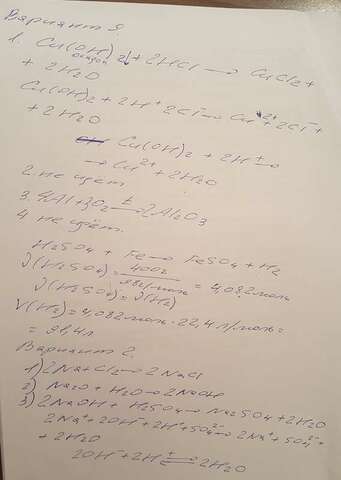 Вариант 9.
1. Cu(OH)2↓ + 2HCl → CuCl2 +
осадок
+ 2H2O
Cu(OH)2 + 2H⁺ 2Cl⁻ → Cu²⁺ + 2Cl⁻ +
+ 2H2O
Cu(OH)2 + 2H⁺ →
→ Cu²⁺ + 2H2O
2. не идёт.
3. 4Al + 3O2 →ᵗ 2Al2O3
4 не идёт.
H2SO4 + Fe → FeSO4 + H2
ν(H2SO4) = 400г / 98г/моль = 4,082 моль
ν(H2SO4) = ν(H2)
V(H2) = 4,082 моль · 22,4 л/моль =
= 91,4л
Вариант 2.
1) 2Na + Cl2 → 2NaCl
2) Na2O + H2O → 2NaOH
3) 2NaOH + H2SO4 → Na2SO4 + 2H2O
2Na⁺ + 2OH⁻ + 2H⁺ + SO4²⁻ → 2Na⁺ + SO4²⁻ +
+ 2H2O
2OH⁻ + 2H⁺ ⇄ 2H2O